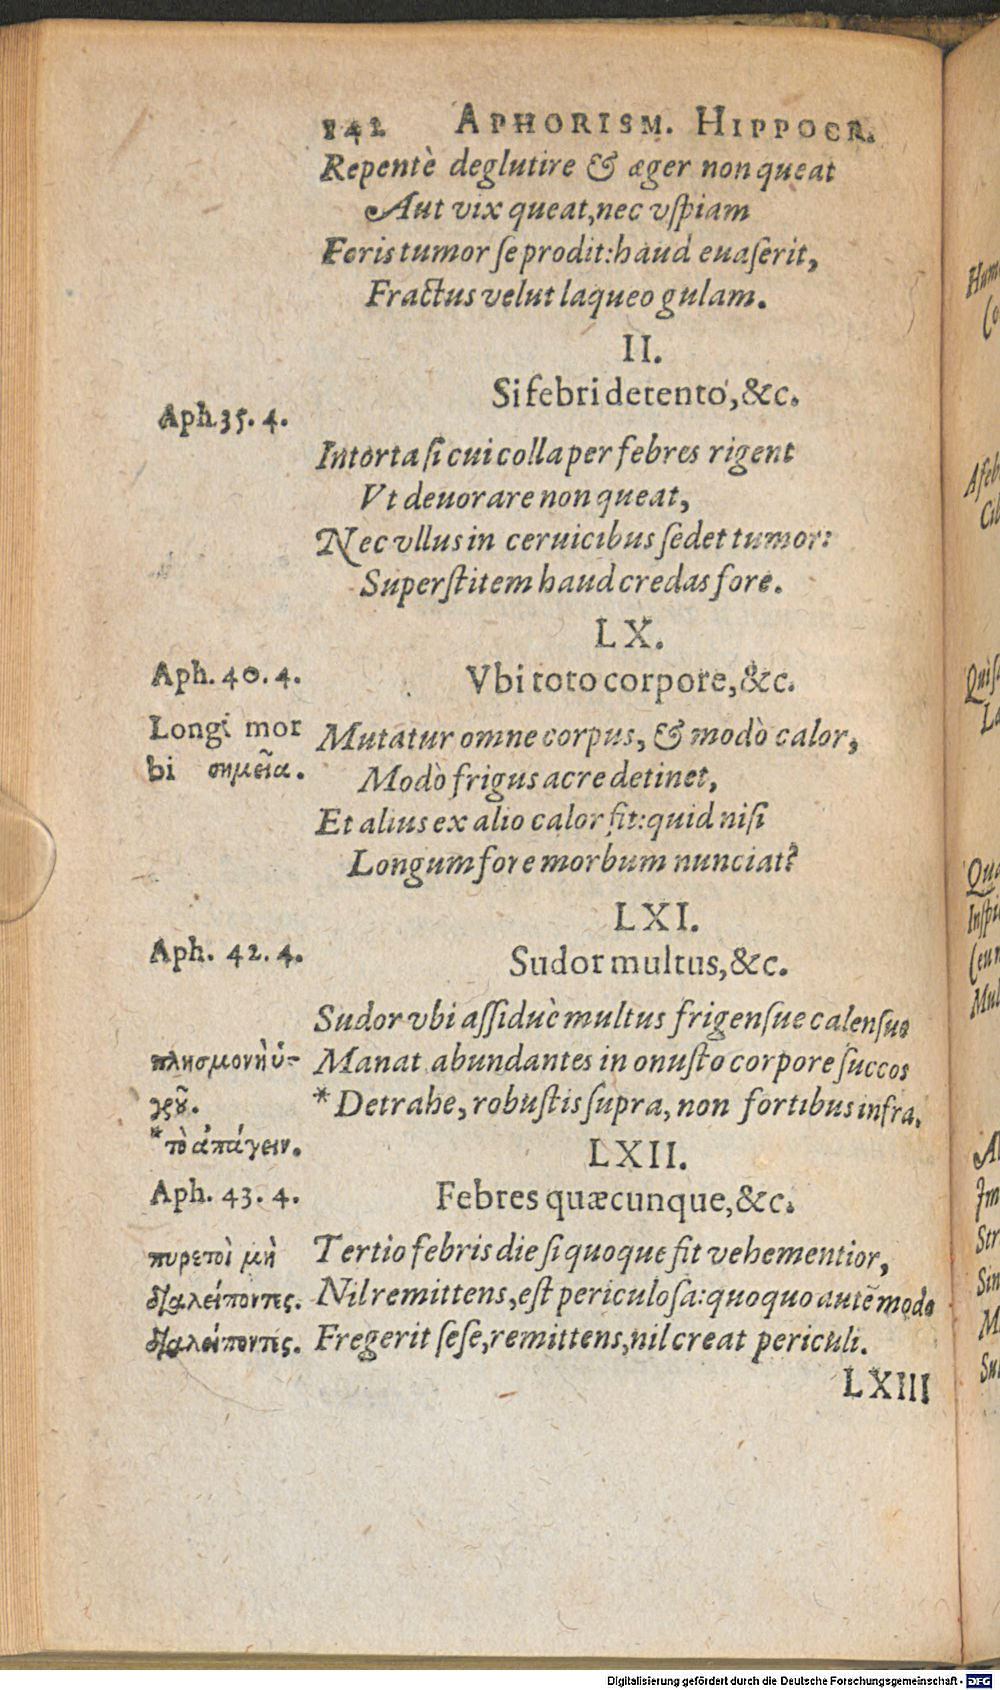 142 APHORISM. HIPPOCR.
Repentè deglutire & æger non queat
Aut vix queat, nec vſpiam
Foris tumor ſe prodit: haud euaſerit,
Fractus velut laqueo gulam.
II.
Si febri detento, &c.
Aph. 35. 4.
Intorta ſi cui colla per febres rigent
Vt deuorare non queat,
Nec vllus in ceruicibus ſedet tumor:
Superſtitem haud credas fore.
LX.
Aph. 40. 4.
Vbi toto corpore, &c.
Longi mor
bi σημεῖα.
Mutatur omne corpus, & modò calor,
Modò frigus acre detinet,
Et alius ex alio calor fit: quid niſi
Longum fore morbum nunciat?
LXI.
Aph. 42. 4.
Sudor multus, &c.
Sudor vbi aſſiduè multus frigenſue calenſue
πλησμονὴ ὑ-
γροῦ.
Manat abundantes in onuſto corpore ſuccos
* Detrahe, robuſtis ſupra, non fortibus infra.
* τὸ ἀπάγειν.
LXII.
Aph. 43. 4.
Febres quæcunque, &c.
πυρετοὶ μὴ
διαλείποντες.
διαλείποντες.
Tertio febris die ſi quoque fit vehementior,
Nil remittens, eſt periculoſa: quoquo autẽ modo
Fregerit ſeſe, remittens, nil creat periculi.
LXIII
Digitalisierung gefördert durch die Deutsche Forschungsgemeinschaft - DFG